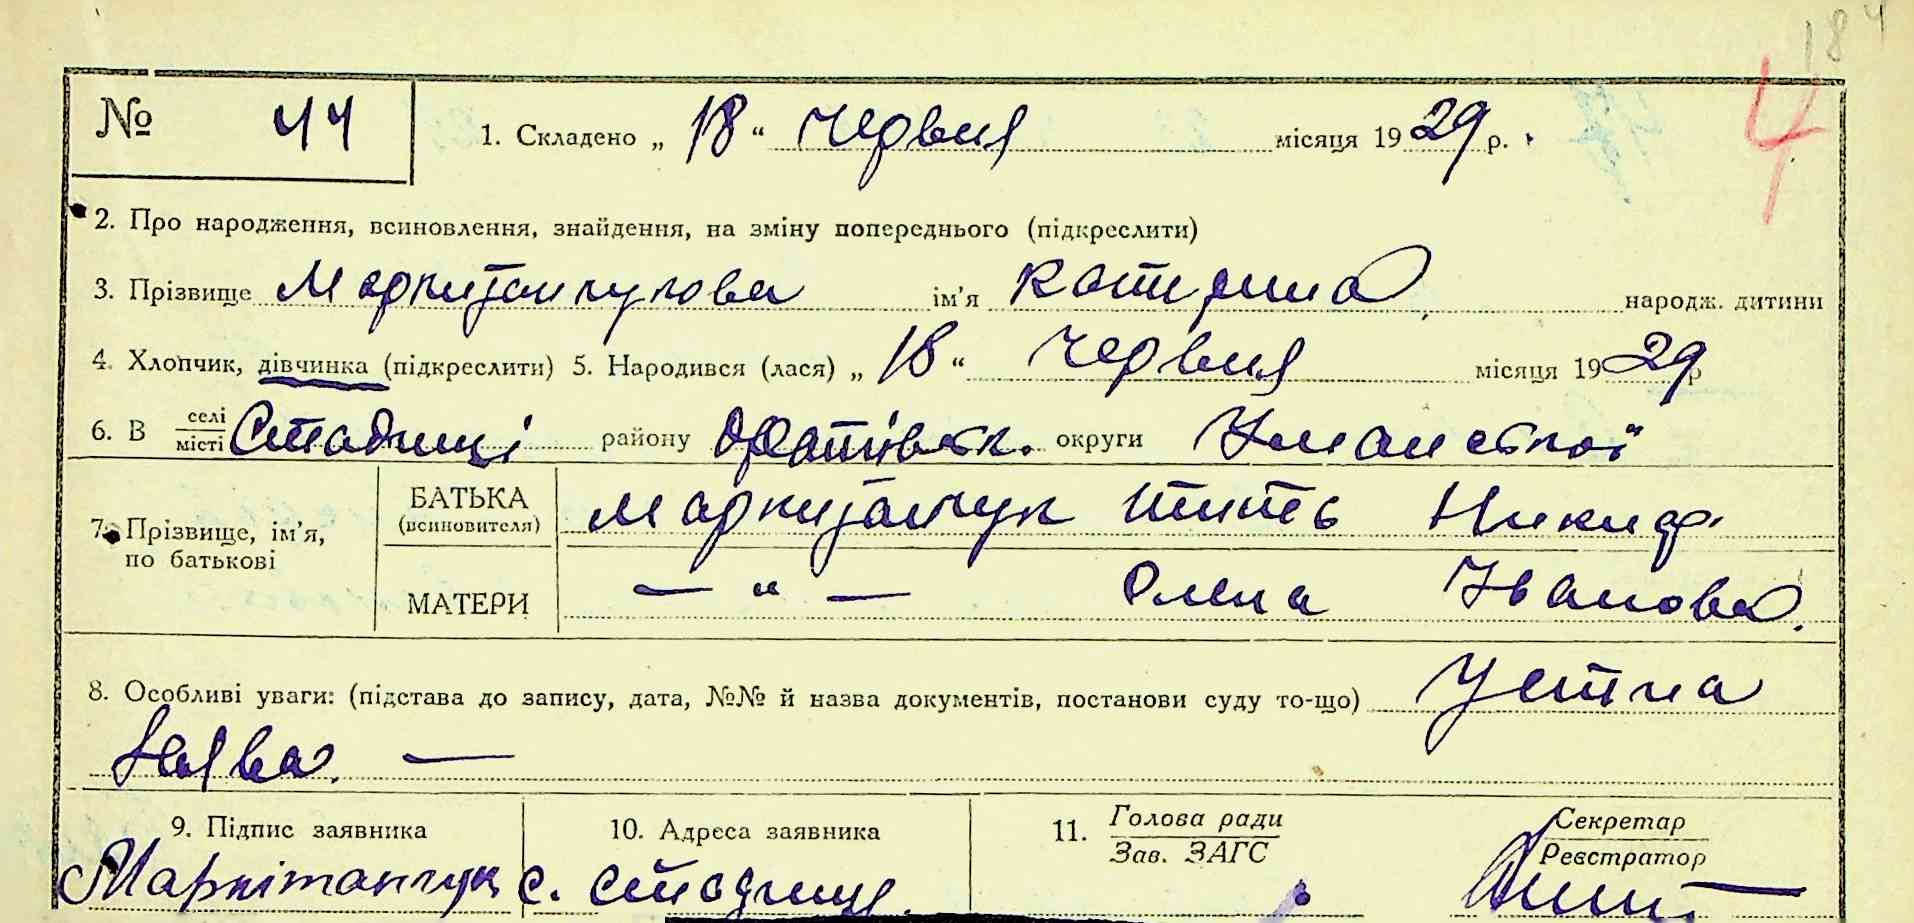 184
4
№ 44
1. Складено „ 18 “ червня місяця 1929 р.
2. Про народження, всиновлення, знайдення, на зміну попереднього (підкреслити)
3. Прізвище Маркитанчукова ім’я Катерина народж. дитини
4. Хлопчик, дівчинка (підкреслити) 5. Народився (лася) „ 18 “ червня місяця 1929 р
6. В селі/місті Стадниці району Оратівськ. округи Уманської
7. Прізвище, ім’я, по батькові
БАТЬКА (всиновителя) Маркитанчук Тить Никиф.
МАТЕРИ — “ — Олена Іванова.
8. Особливі уваги: (підстава до запису, дата, №№ й назва документів, постанови суду то-що) Устна
заява. —
9. Підпис заявника 10. Адреса заявника 11. Голова ради Секретар
Зав. ЗАГС Реєстратор
Маркітанчук с. Стадниця.